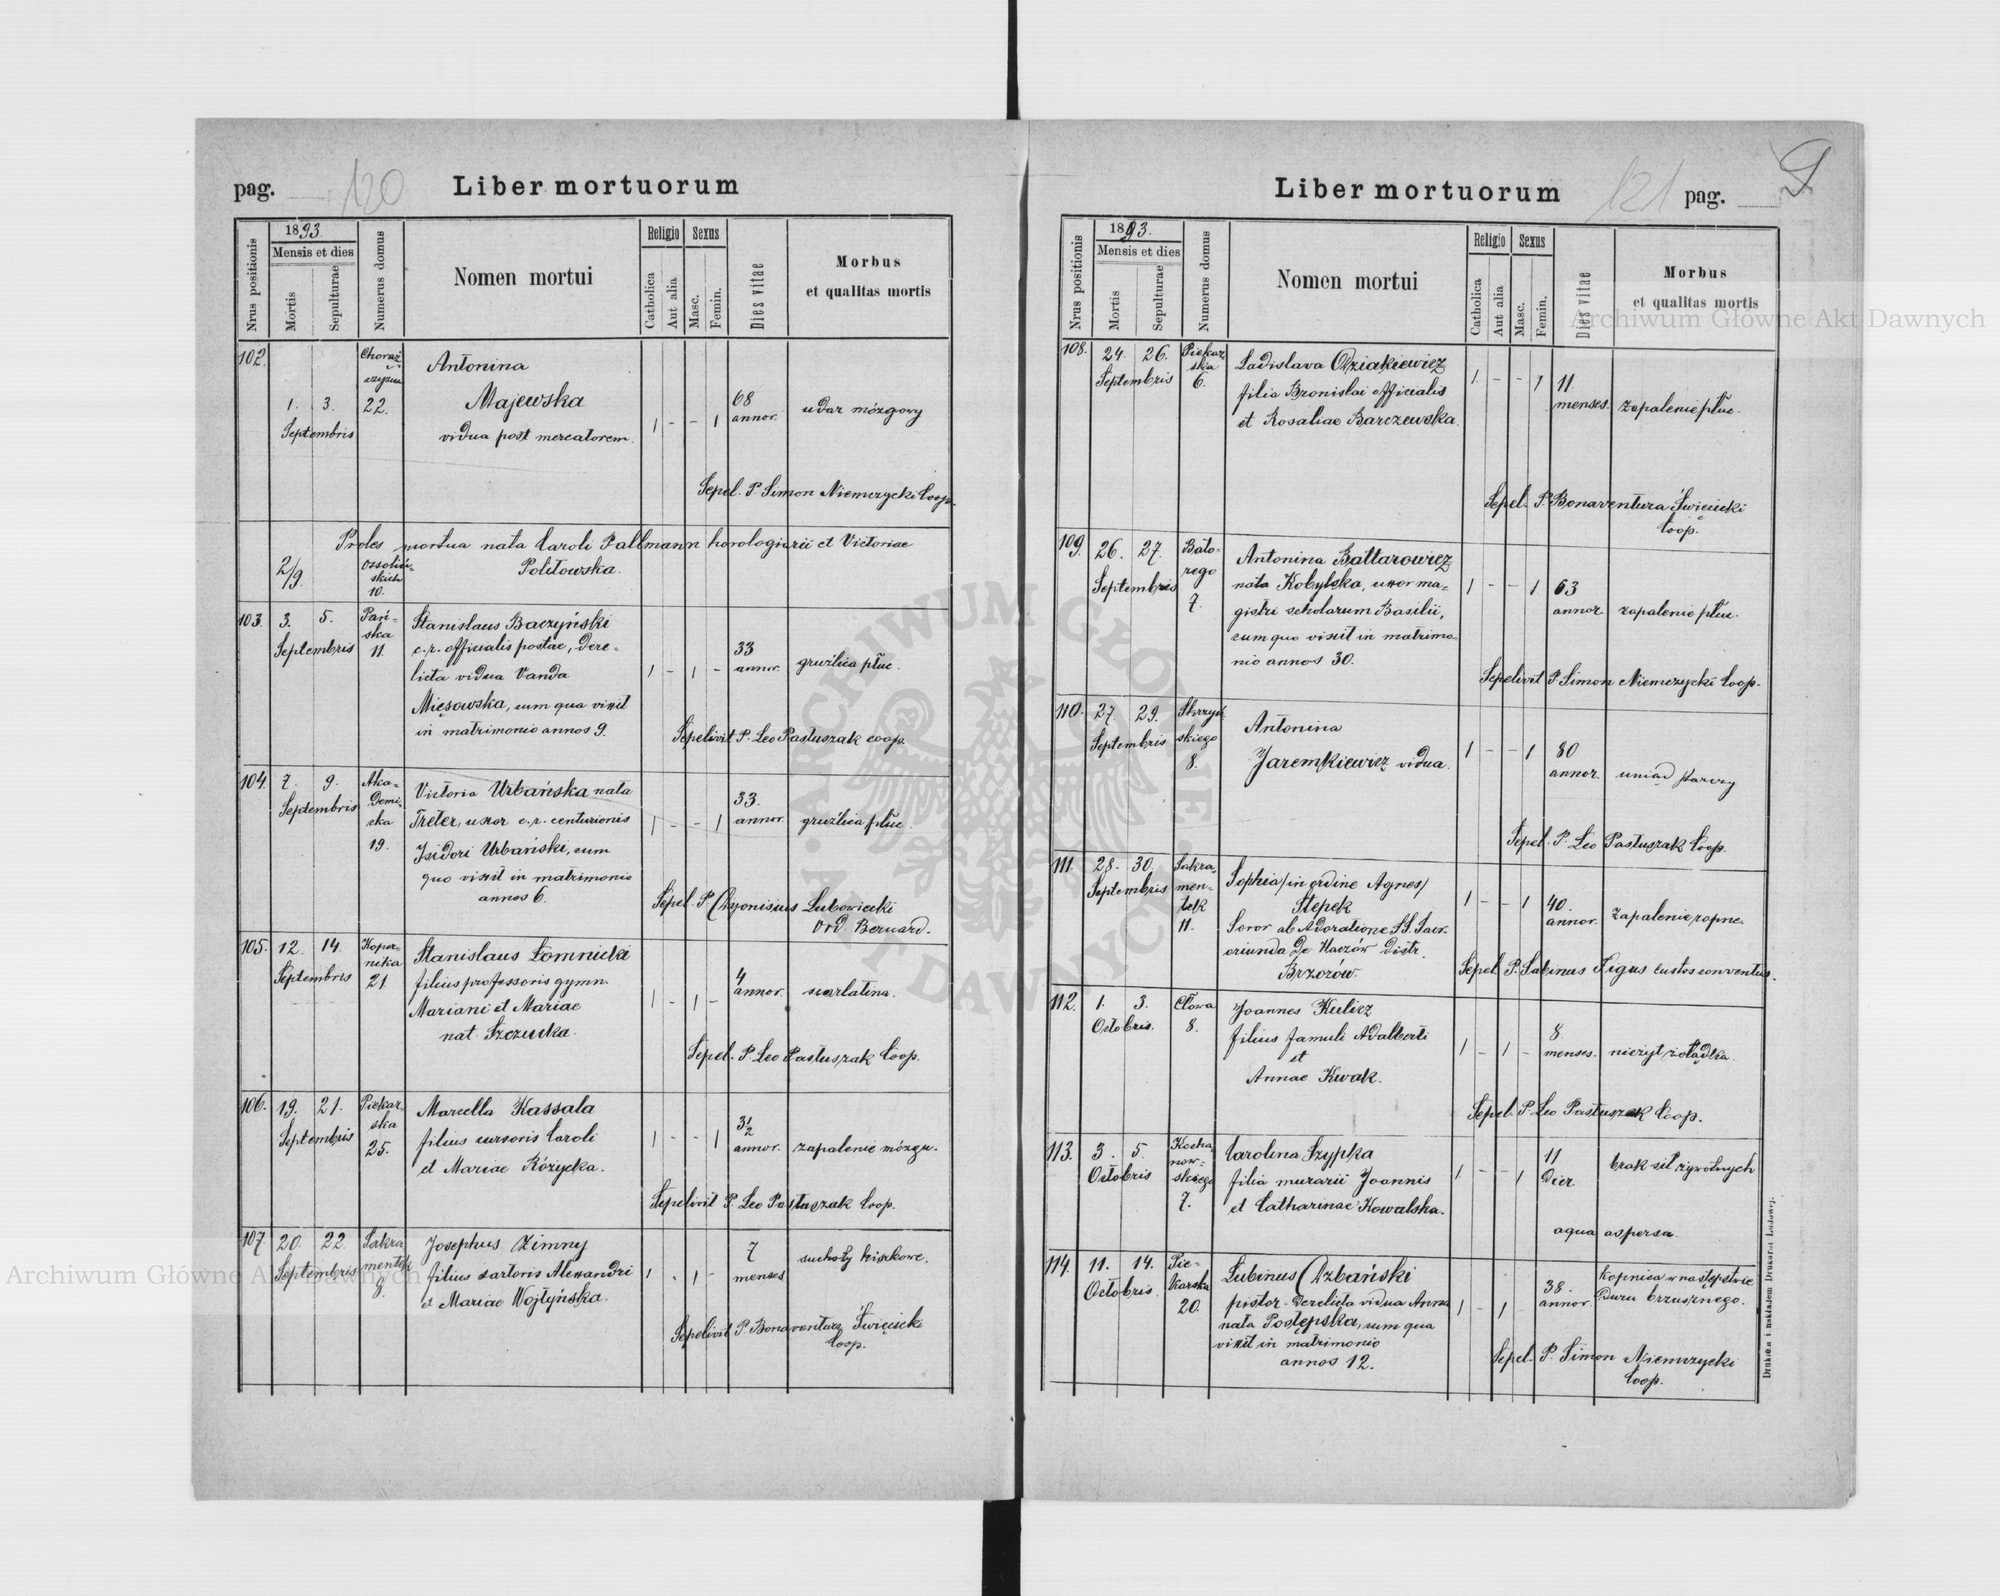 pag. 120
Liber mortuorum
Nrus positionis
1893.
Mensis et dies
Mortis
Sepulturae
Numerus domus
Nomen mortui
Religio
Catholica
Aut alia
Sexus
Masc.
Femin.
Dies vitae
Morbus
et qualitas mortis
102.
1. 3.
Septembris
22.
Antonina
Majewska
vidua post mercatorem.
1 - - 1
68
annor.
udar mózgowy
Sepel. P. Simon Niemczycki Coop.
Proles mortua nata Caroli Fallmann horologiarii et Victoriae
Politowska.
2/9.
Ossoliń-
skich
10.
103. 3. 5.
Septembris
Pań-
ska
11.
Stanislaus Baczyński
c.r. officialis postae, dere-
licta vidua Vanda
Mięsowska, cum qua vixit
in matrimonio annos 9.
1 - 1 -
33
annor.
gruźlica płuc.
Sepelivit P. Leo Pastuszak coop.
104. 7. 9.
Septembris
Aka-
demi-
cka
19.
Victoria Urbańska nata
Treter, uxor c.r. centurionis
Isidori Urbański, cum
quo vixit in matrimonio
annos 6.
1 - - 1
33.
annor.
gruźlica płuc.
Sepel. P. Dyonisius Lubowiecki
Ord. Bernard.
105. 12. 14.
Septembris
Koper-
nika
21
Stanislaus Łomnicki
filius professoris gymn.
Mariani et Mariae
nat. Szczucka.
1 - 1 -
4
annor.
scarlatina.
Sepel. P. Leo Pastuszak Coop.
106. 19. 21.
Septembris
Piekar-
ska
25.
Marcella Kassala
filius cursoris Caroli
et Mariae Różycka.
1 - - 1
3 1/2
annor.
zapalenie mózgu.
Sepelivit P. Leo Pastuszak Coop.
107 20. 22.
Septembris
Sakra
mentek
9.
Josephus Zimny
filius sartoris Alexandri
et Mariae Wojtyńska.
1 . 1 -
7
menses
suchoty kiszkowe.
Sepelivit P. Bonaventura Święcicki
Coop.
Liber mortuorum
121 pag. 9
Nrus positionis
1893.
Mensis et dies
Mortis
Sepulturae
Numerus domus
Nomen mortui
Religio
Catholica
Aut alia
Sexus
Masc.
Femin.
Dies vitae
Morbus
et qualitas mortis
108. 24. 26.
Septembris
Piekar
ska
6.
Ladislava Dziakiewicz
filia Bronislai officialis
et Rosaliae Barczewska.
1 - - 1
11.
menses.
zapalenie płuc.
Sepel. P. Bonaventura Święcicki
Coop.
109. 26. 27.
Septembris
Bato-
rego
7.
Antonina Battarowicz
nata Kobylska, uxor ma-
gistri scholarum Basilii,
cum quo vixit in matrimo-
nio annos 30.
1 - - 1
63
annor.
zapalenie płuc.
Sepelivit P. Simon Niemczycki Coop.
110. 27. 29.
Septembris
Skrzyń-
skiego
8.
Antonina
Jaremkiewicz vidua.
1 - - 1
80
annor.
uwiąd starczy
Sepel. P. Leo Pastuszak Coop.
111. 28. 30.
Septembris
Sakra-
men-
tek
11.
Sophia /in ordine Agnes/
Stepek
Soror ab Adoratione SS. Sacr.
oriunda de Haczów Distr.
Brzozów.
1 - - 1
40.
annor.
Zapalenie ropne.
Sepel. P. Sabinus Figus custos conventus.
112. 1. 3.
Octobris.
Cłowa
8.
Joannes Kulicz
filius famuli Adalberti
et
Annae Kwak.
1 - 1 -
8
menses.
nieżyt żołądka.
Sepel. P. Leo Pastuszak Coop.
113. 3. 5.
Octobris
Kocha-
now-
skiego
7.
Carolina Szypka
filia murarii Joannis
et Catharinae Kowalska.
1 - - 1
11
dier.
brak sił żywotnych
aqua aspersa.
114. 11. 14.
Octobris.
Pie-
karska
20.
Lubinus Dzbański
pistor. derelicta vidua Anna
nata Postępska, cum qua
vixit in matrimonio
annos 12.
1 - 1 -
38.
annor.
Ropnica w następstwie
Duru brzusznego.
Sepel. P. Simon Niemczycki
Coop.
Drukiem i nakładem Drukarni Ludowej.
Archiwum Główne Akt Dawnych
Archiwum Główne Akt Dawnych
ARCHIWUM GŁÓWNE AKT DAWNYCH